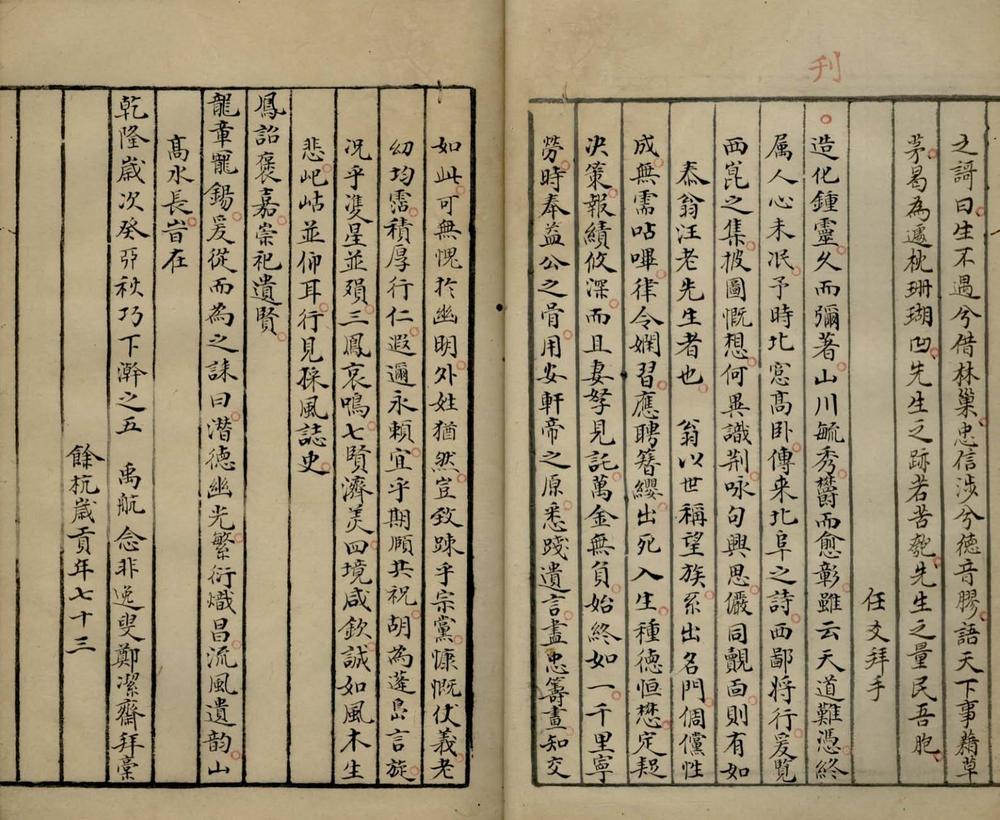 刊
之謌曰生不過兮借林巢忠信涉兮德音膠語天下事藉草
茅曷為遽枕珊瑚凹先生之跡若苦匏先生之量民吾胞
任爻拜手
造化鍾靈久而彌著山川毓秀欝而愈彰雖云天道難憑終
属人心未泯予時北窓高卧傳来北阜之詩西鄙将行爰覧
西崑之集披圖慨想何異識荆咏句興思儼同覿靣則有如
泰翁汪老先生者也 翁以世稱望族系出名門倜儻性
成無需呫嗶律令嫻習應聘簪纓出死入生種德恒懋定超
决策報績攸深而且妻孥見託萬金無負始終如一千里寧
勞時奉益公之骨用安軒帝之原悉踐遺言盡忠籌畫知交
如此可無愧於幽明外姓猶然豈致踈乎宗黨慷慨仗義老
幼均霑積厚行仁遐邇永頼宜乎期願共祝胡為蓬島言旋
况乎雙星並殞三鳳哀鳴七賢濟羙四境咸欽誠如風木生
悲屺岵並仰耳行見採風誌史
鳳詔褒嘉崇祀遺賢
龍章寵錫爰從而為之誄曰潛德幽光繁衍熾昌流風遺韵山
高水長旹在
乾隆嵗次癸丑秋巧下澣之五 禹航念非逸叟鄭潔齋拜稾
餘杭嵗貢年七十三